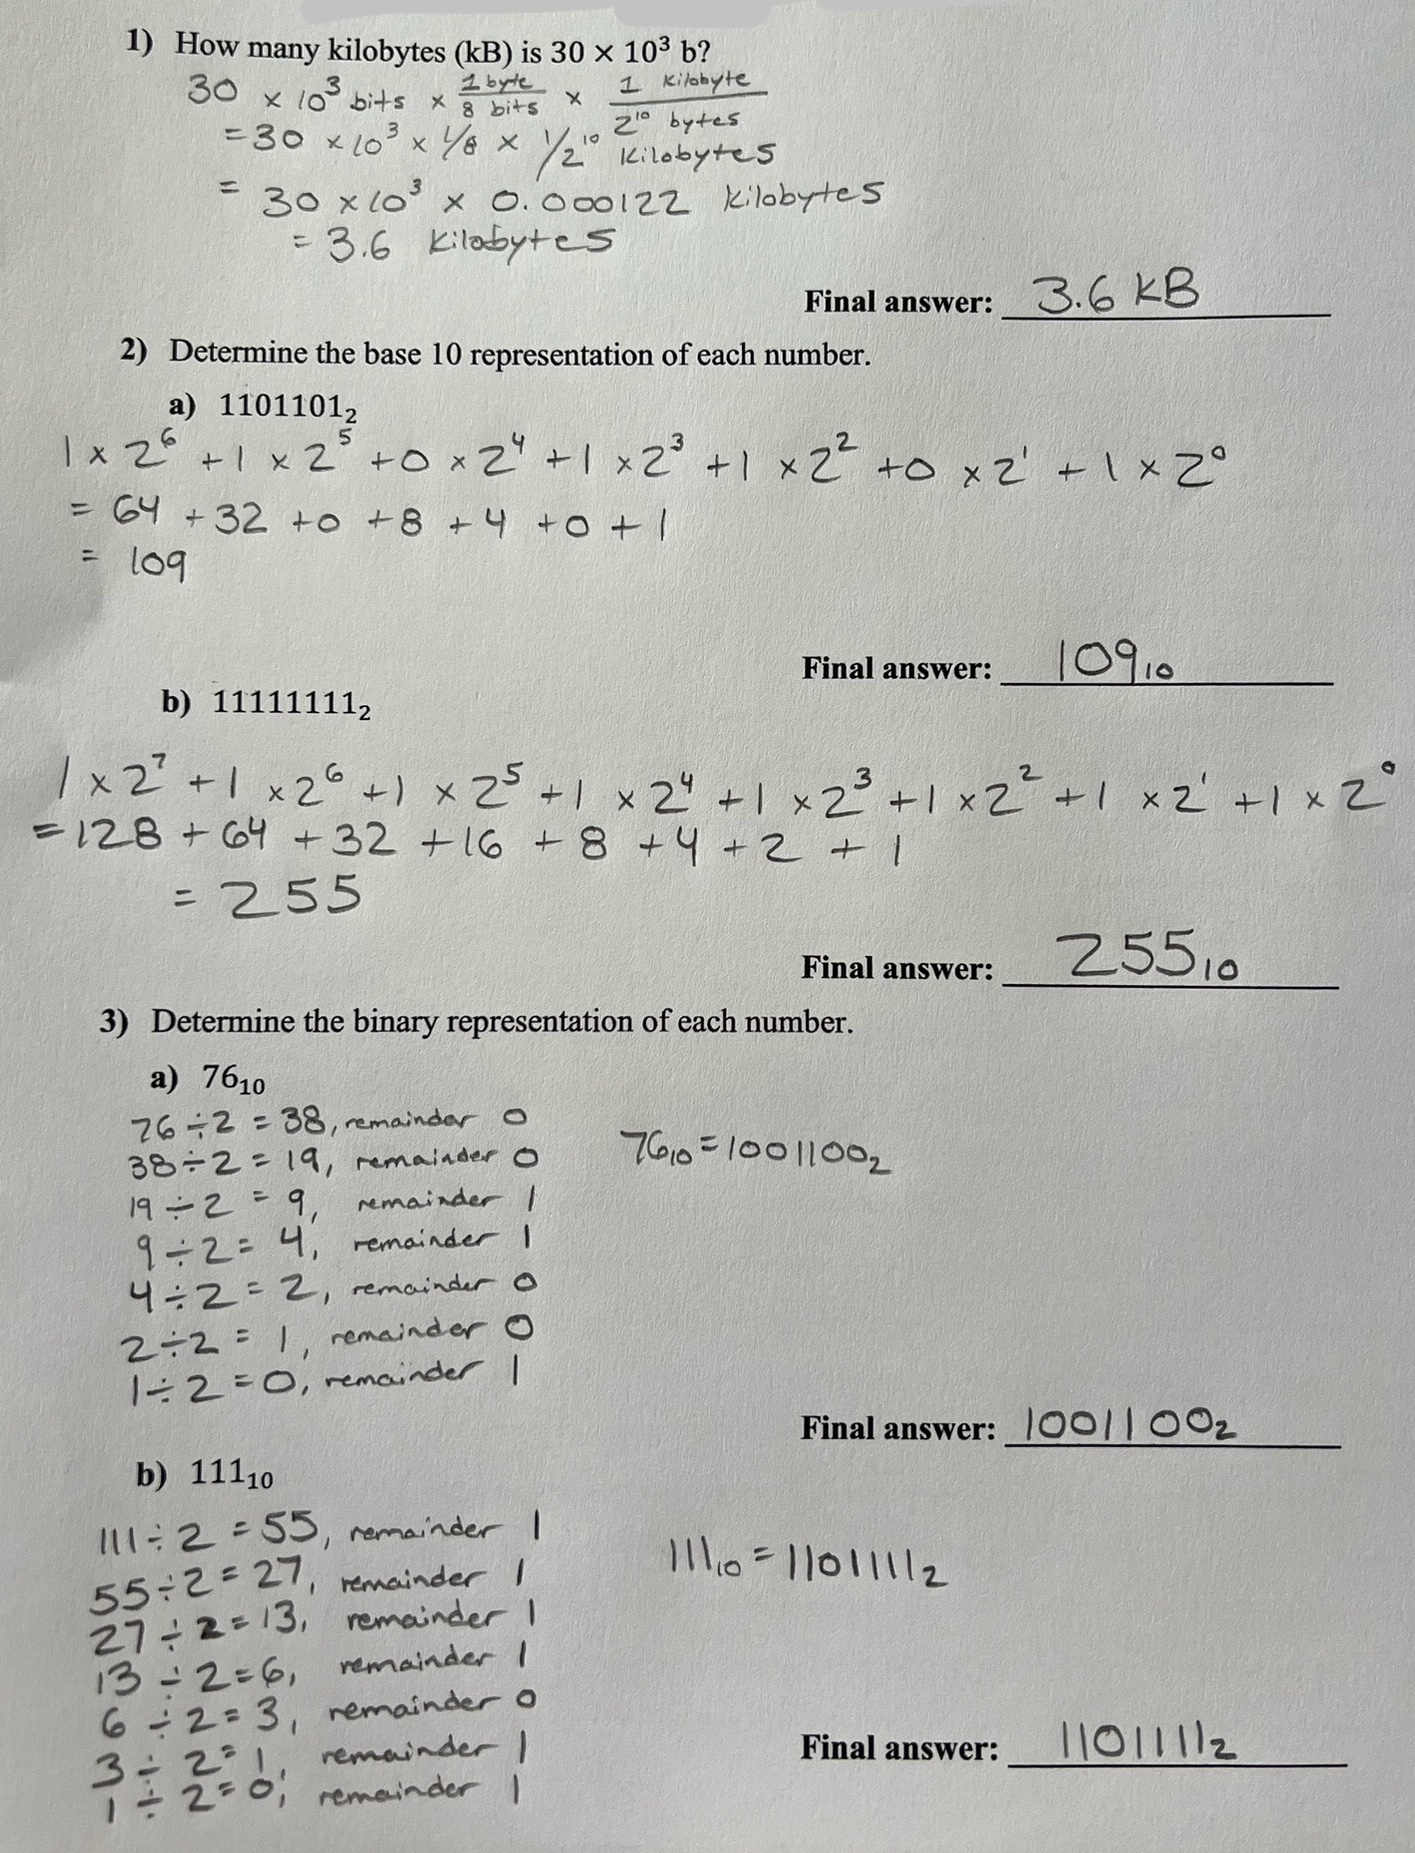 1) How many kilobytes (kB) is 30 × 10³ b?
30 × 10³ bits × 1 byte / 8 bits × 1 kilobyte / 2¹⁰ bytes
= 30 × 10³ × 1/8 × 1/2¹⁰ kilobytes
= 30 × 10³ × 0.000122 kilobytes
= 3.6 kilobytes
Final answer: 3.6 kB
2) Determine the base 10 representation of each number.
a) 1101101₂
1 × 2⁶ + 1 × 2⁵ + 0 × 2⁴ + 1 × 2³ + 1 × 2² + 0 × 2¹ + 1 × 2⁰
= 64 + 32 + 0 + 8 + 4 + 0 + 1
= 109
Final answer: 109₁₀
b) 11111111₂
1 × 2⁷ + 1 × 2⁶ + 1 × 2⁵ + 1 × 2⁴ + 1 × 2³ + 1 × 2² + 1 × 2¹ + 1 × 2⁰
= 128 + 64 + 32 + 16 + 8 + 4 + 2 + 1
= 255
Final answer: 255₁₀
3) Determine the binary representation of each number.
a) 76₁₀
76 ÷ 2 = 38, remainder 0
38 ÷ 2 = 19, remainder 0
76₁₀ = 1001100₂
19 ÷ 2 = 9, remainder 1
9 ÷ 2 = 4, remainder 1
4 ÷ 2 = 2, remainder 0
2 ÷ 2 = 1, remainder 0
1 ÷ 2 = 0, remainder 1
Final answer: 1001100₂
b) 111₁₀
111 ÷ 2 = 55, remainder 1
55 ÷ 2 = 27, remainder 1
111₁₀ = 1101111₂
27 ÷ 2 = 13, remainder 1
13 ÷ 2 = 6, remainder 1
6 ÷ 2 = 3, remainder 0
3 ÷ 2 = 1, remainder 1
1 ÷ 2 = 0, remainder 1
Final answer: 1101111₂